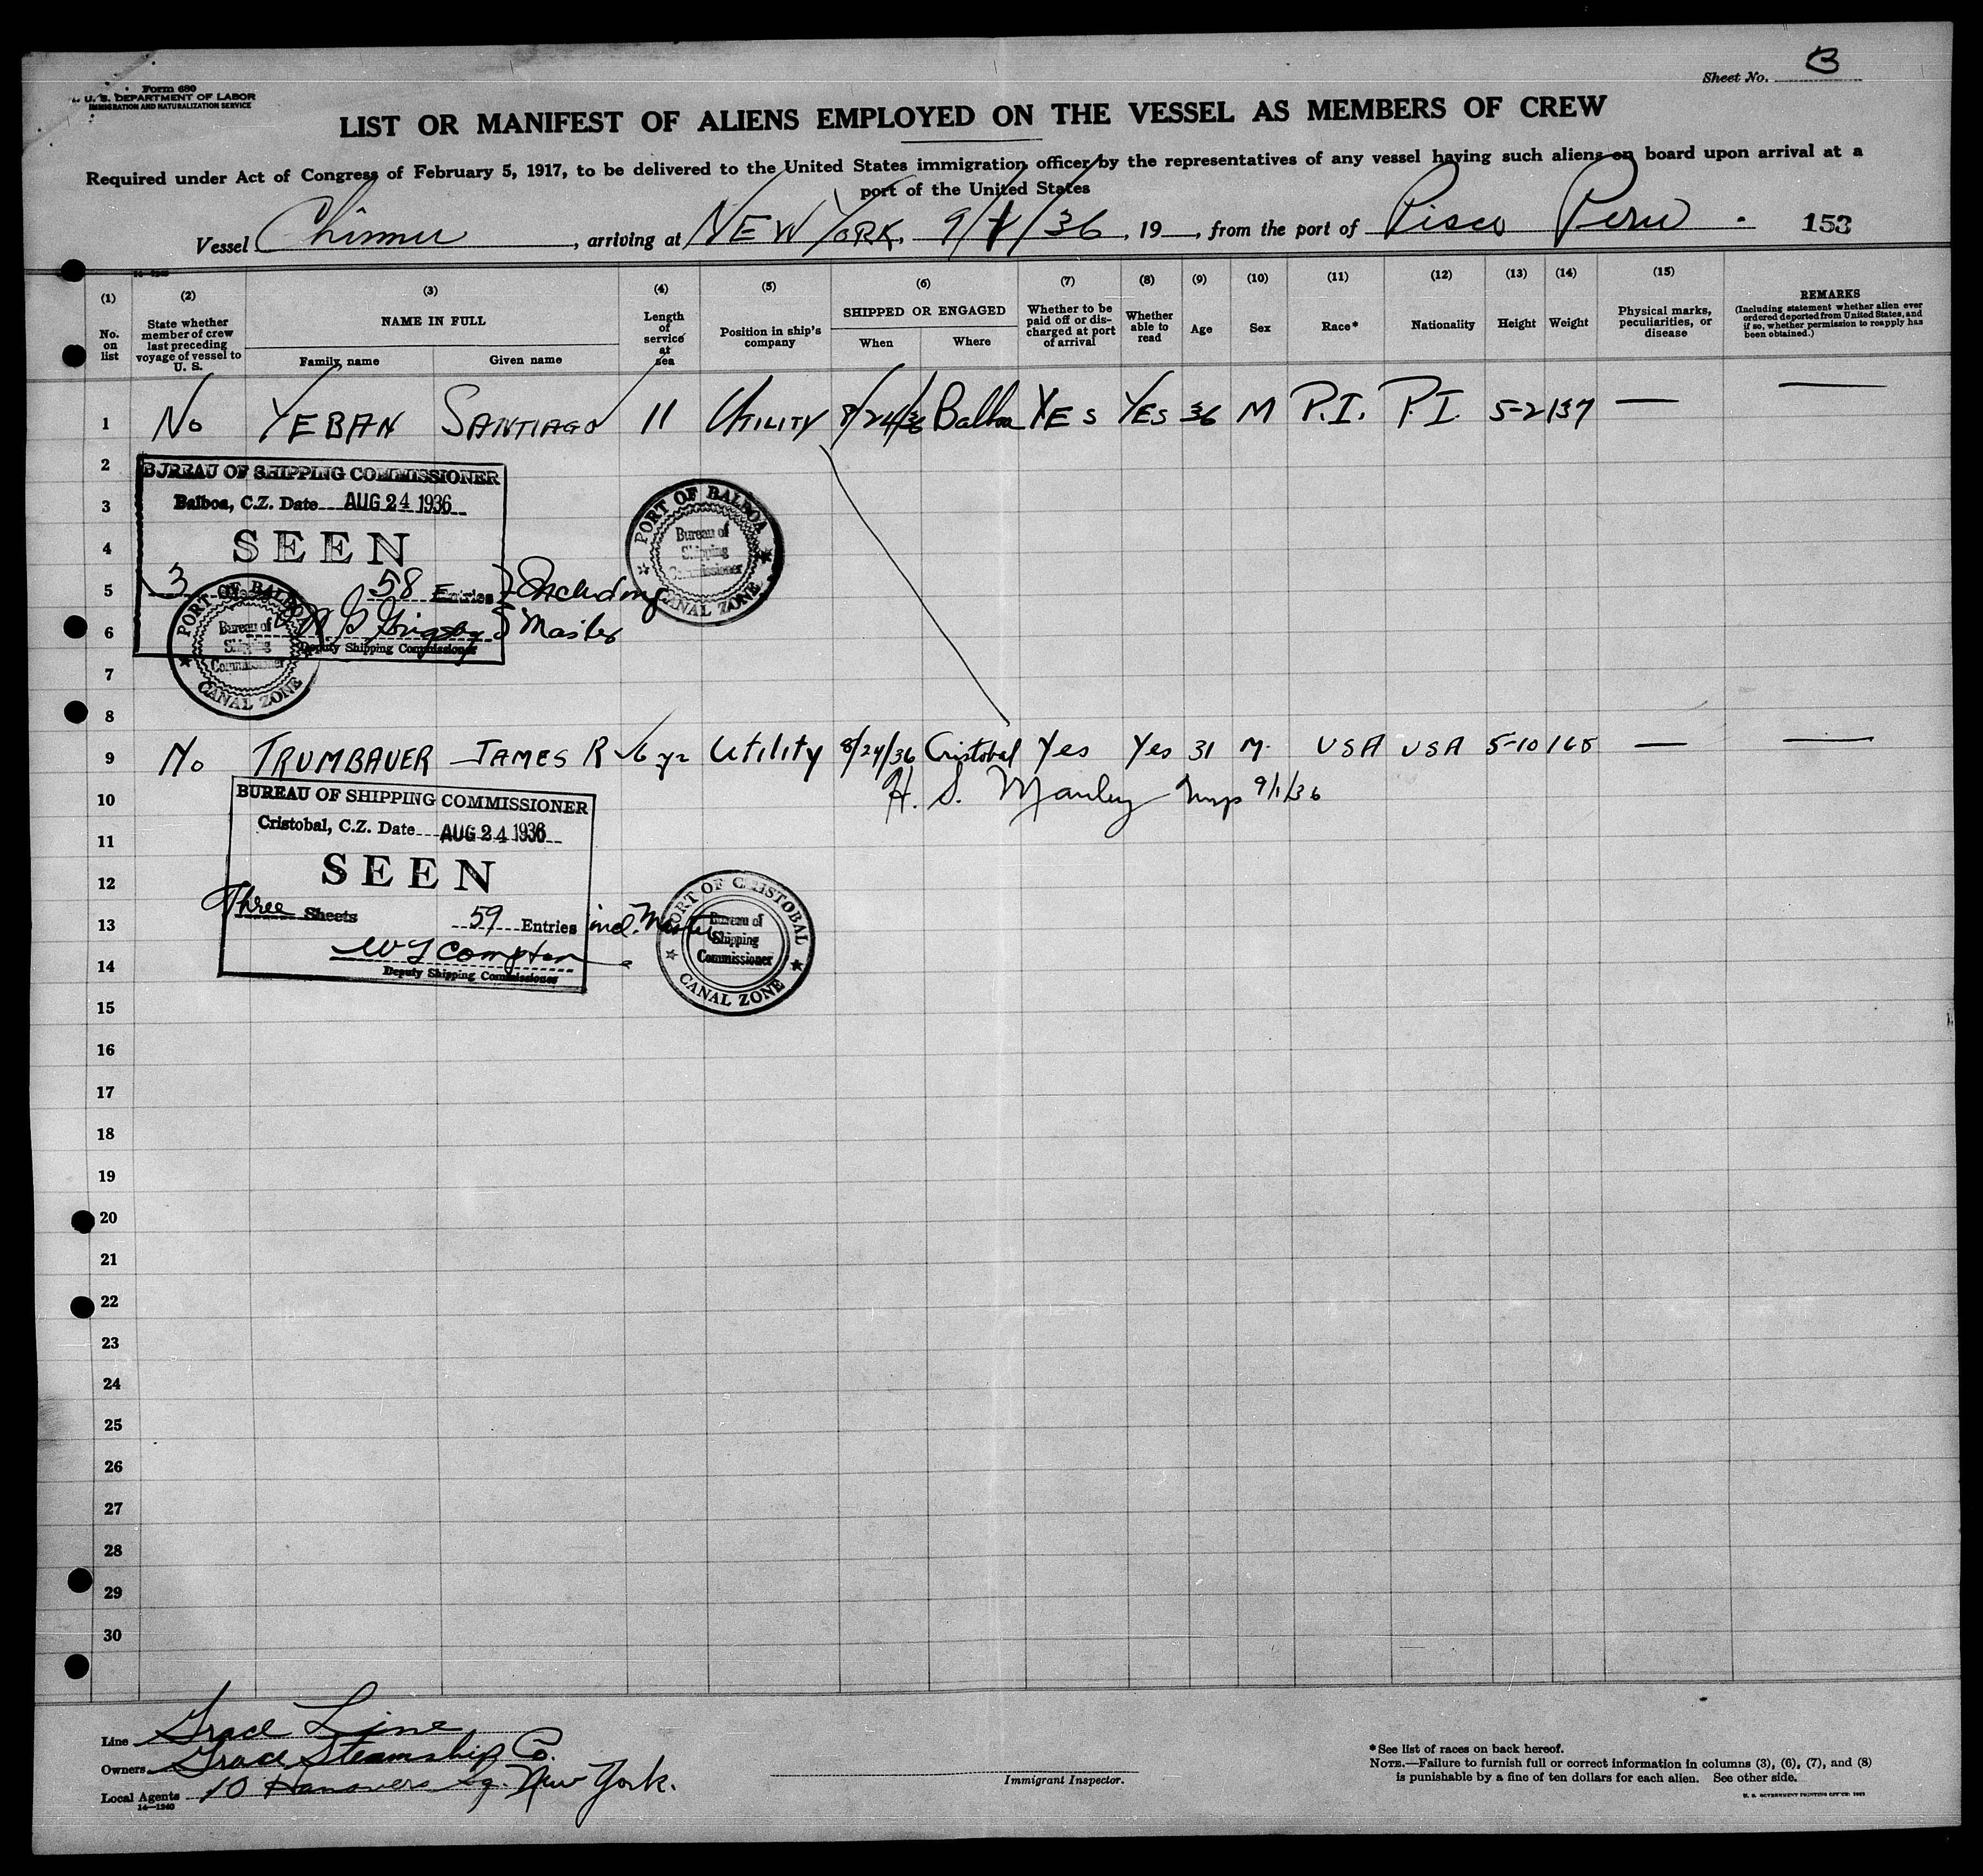 Form 680
U. S. DEPARTMENT OF LABOR
IMMIGRATION AND NATURALIZATION SERVICE
Sheet No. 3
LIST OR MANIFEST OF ALIENS EMPLOYED ON THE VESSEL AS MEMBERS OF CREW
Required under Act of Congress of February 5, 1917, to be delivered to the United States immigration officer by the representatives of any vessel having such aliens on board upon arrival at a
port of the United States
Vessel , arriving at NEW YORK. 9/1/36, 19 , from the port of Pisco Peru . 153
(1) (2) (3) (4) (5) (6) (7) (8) (9) (10) (11) (12) (13) (14) (15)
No. on list
State whether member of crew last preceding voyage of vessel to U. S.
NAME IN FULL
Family name Given name
Length of service at sea
Position in ship's company
SHIPPED OR ENGAGED
When Where
Whether to be paid off or discharged at port of arrival
Whether able to read
Age
Sex
Race*
Nationality
Height
Weight
Physical marks, peculiarities, or disease
REMARKS
(Including statement whether alien ever ordered deported from United States, and if so, whether permission to reapply has been obtained.)
1 No YEBAN SANTIAGO 11 UTILITY 8/24/36 Balboa YES YES 36 M P.I. P.I. 5-2 137 —
2
BUREAU OF SHIPPING COMMISSIONER
3
Balboa, C.Z. Date AUG 24 1936
4
SEEN
5
3 58 Entries } Including
6
Master
Deputy Shipping Commissioner
PORT OF BALBOA
Bureau of
Shipping
Commissioner
CANAL ZONE
PORT OF BALBOA
Bureau of
Shipping
Commissioner
CANAL ZONE
7
8
9 No TRUMBAUER JAMES R 6 yr Utility 8/24/36 Cristobal Yes Yes 31 M. USA USA 5-10 165 —
10
H. S. Manley Insp 9/1/36
BUREAU OF SHIPPING COMMISSIONER
Cristobal, C.Z. Date AUG 24 1936
11
SEEN
12
Three Sheets 59 Entries incl. Master
13
W J Compton
Deputy Shipping Commissioner
14
PORT OF CRISTOBAL
Bureau of
Shipping
Commissioner
CANAL ZONE
15
16
17
18
19
20
21
22
23
24
25
26
27
28
29
30
Line Grace Line
Owners Grace Steamship Co.
Local Agents 10 Hanovers Sq. New York.
14—1240
Immigrant Inspector.
*See list of races on back hereof.
NOTE.—Failure to furnish full or correct information in columns (3), (6), (7), and (8)
is punishable by a fine of ten dollars for each alien. See other side.